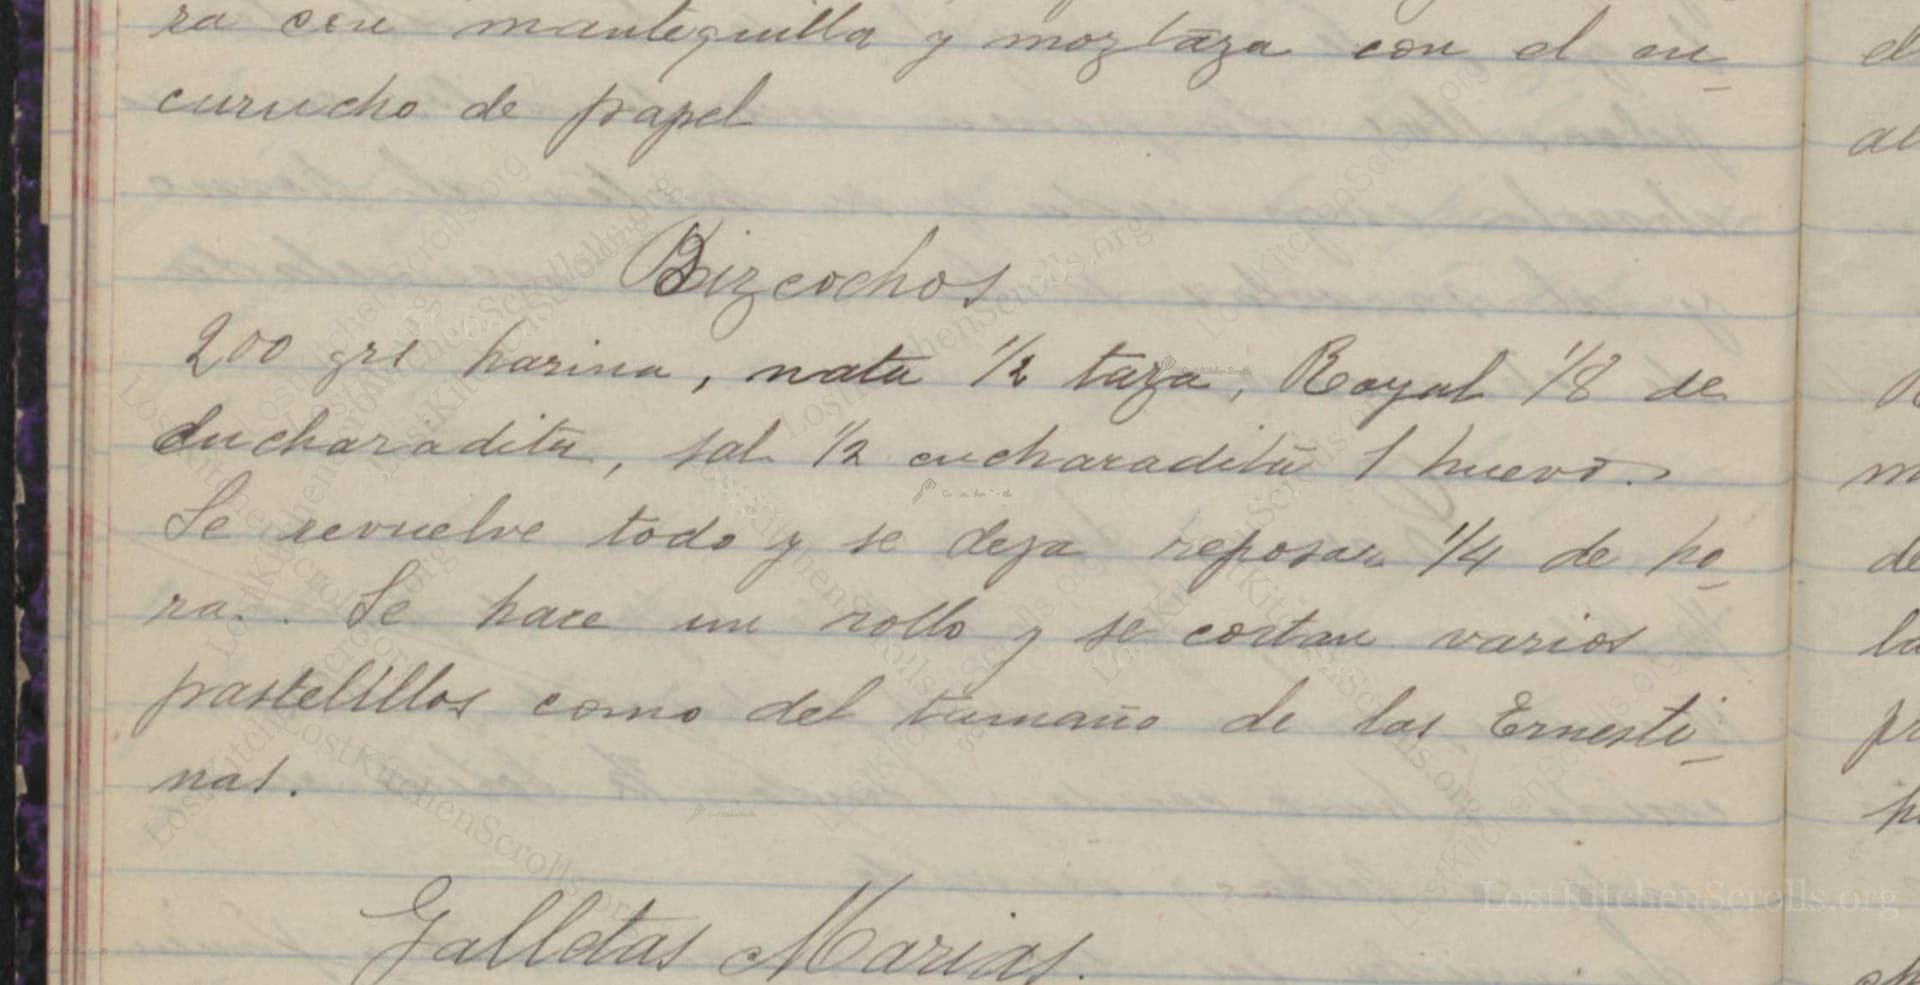 ra con mantequilla y moztaza con el cu_
curucho de papel
Bizcochos
200 grs harina, nata 1/2 taza, Royal 1/8 de
cucharadita, sal 1/2 cucharadita 1 huevo.
Se revuelve todo y se deja reposar 1/4 de ho_
ra. Se hace un rollo y se cortan varios
pastelillos como del tamaño de las Ernesti_
nas.
Galletas Marias.
LostKitchenScrolls.org